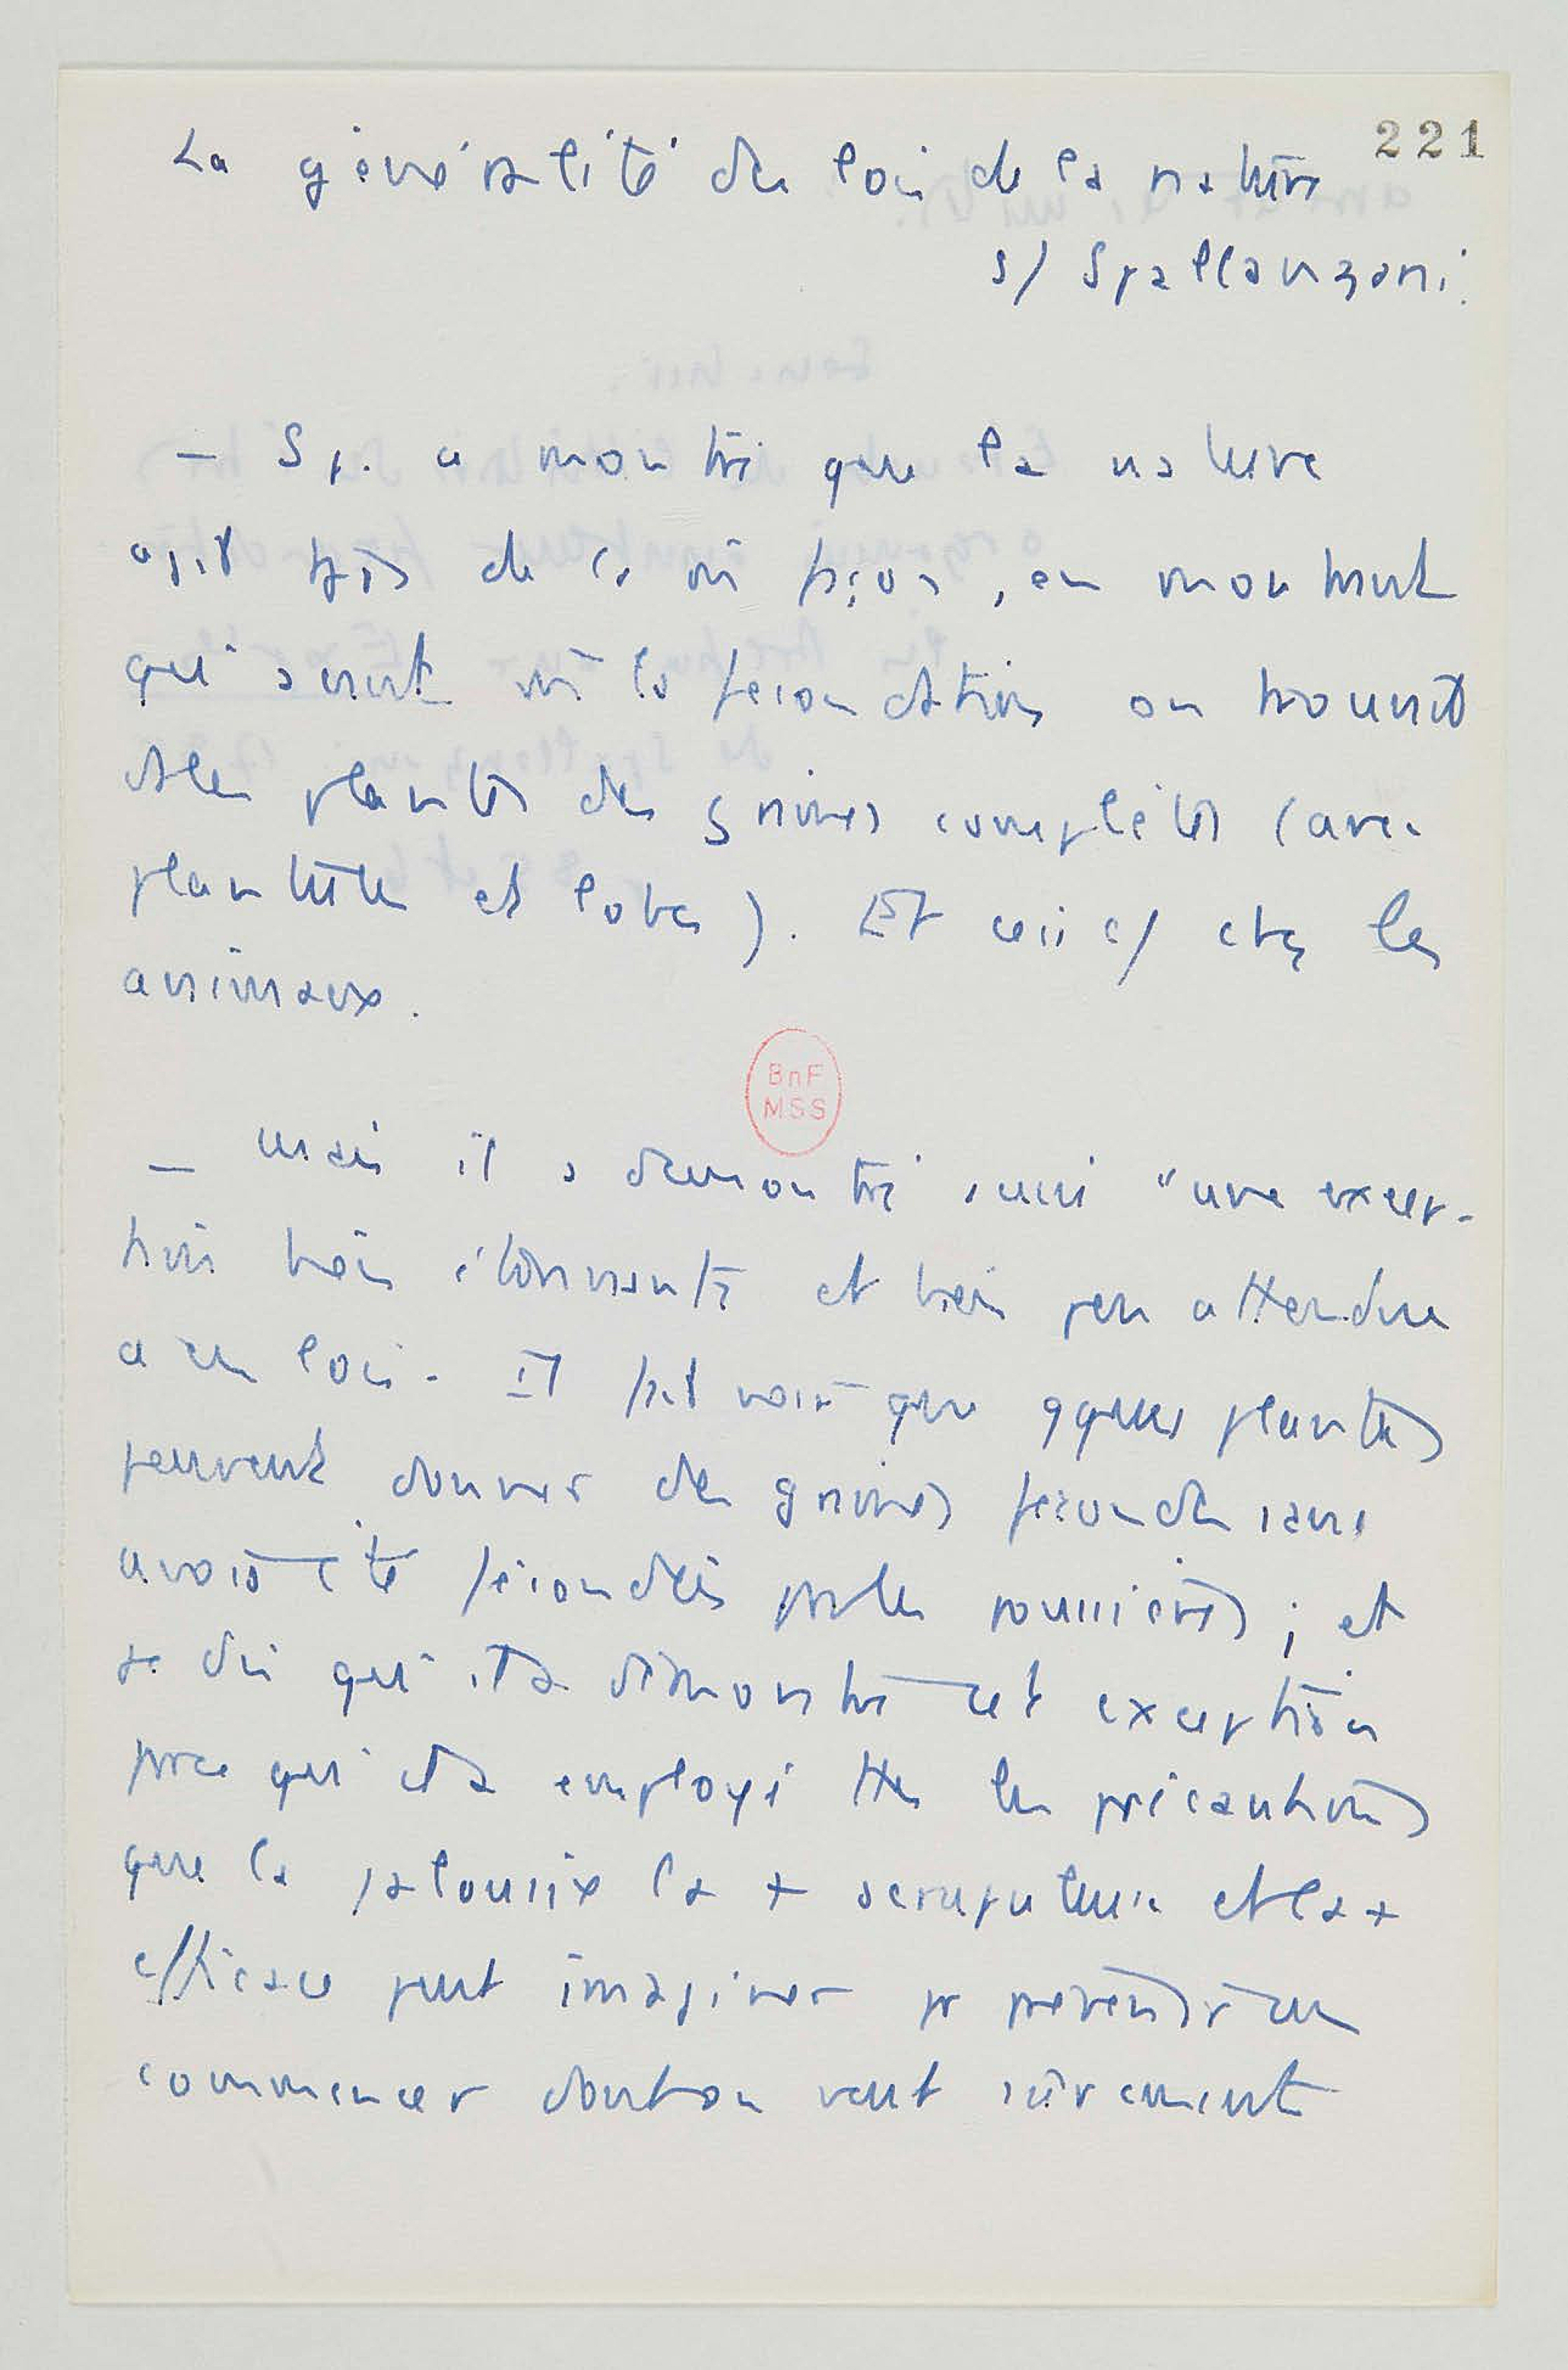 221
La généralité des lois de la nature
s/ Spallanzani.
– Sp. a montré que la nature
agit tjs de la m̄ façon, en montrant
qu'avant m̄ la fécondation on trouvait
ds les plantes des graines complètes (avec
plantule et lobes). Et ceci c/ chez les
animaux.
BnF
MSS
– mais il a démontré aussi "une excep-
tion bien étonnante et bien peu attendue
à ces lois. Il fait voir que qques plantes
peuvent donner des graines fécondes sans
avoir été fécondées par les poussières ; et
je dis qu'il a démontré cet exception
parce qu'il a employé ttes les précautions
que la jalousie la + scrupuleuse et la +
efficace peut imaginer pr prévenir un
commencer dont on veut sûrement